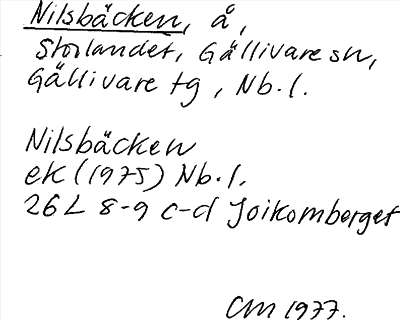 Nilsbäcken, å,
Storlandet, Gällivare sn,
Gällivare tg, Nb.l.
Nilsbäcken
ek (1975) Nb.l.
26L 8-9 c-d Joikomberget
CM 1977.